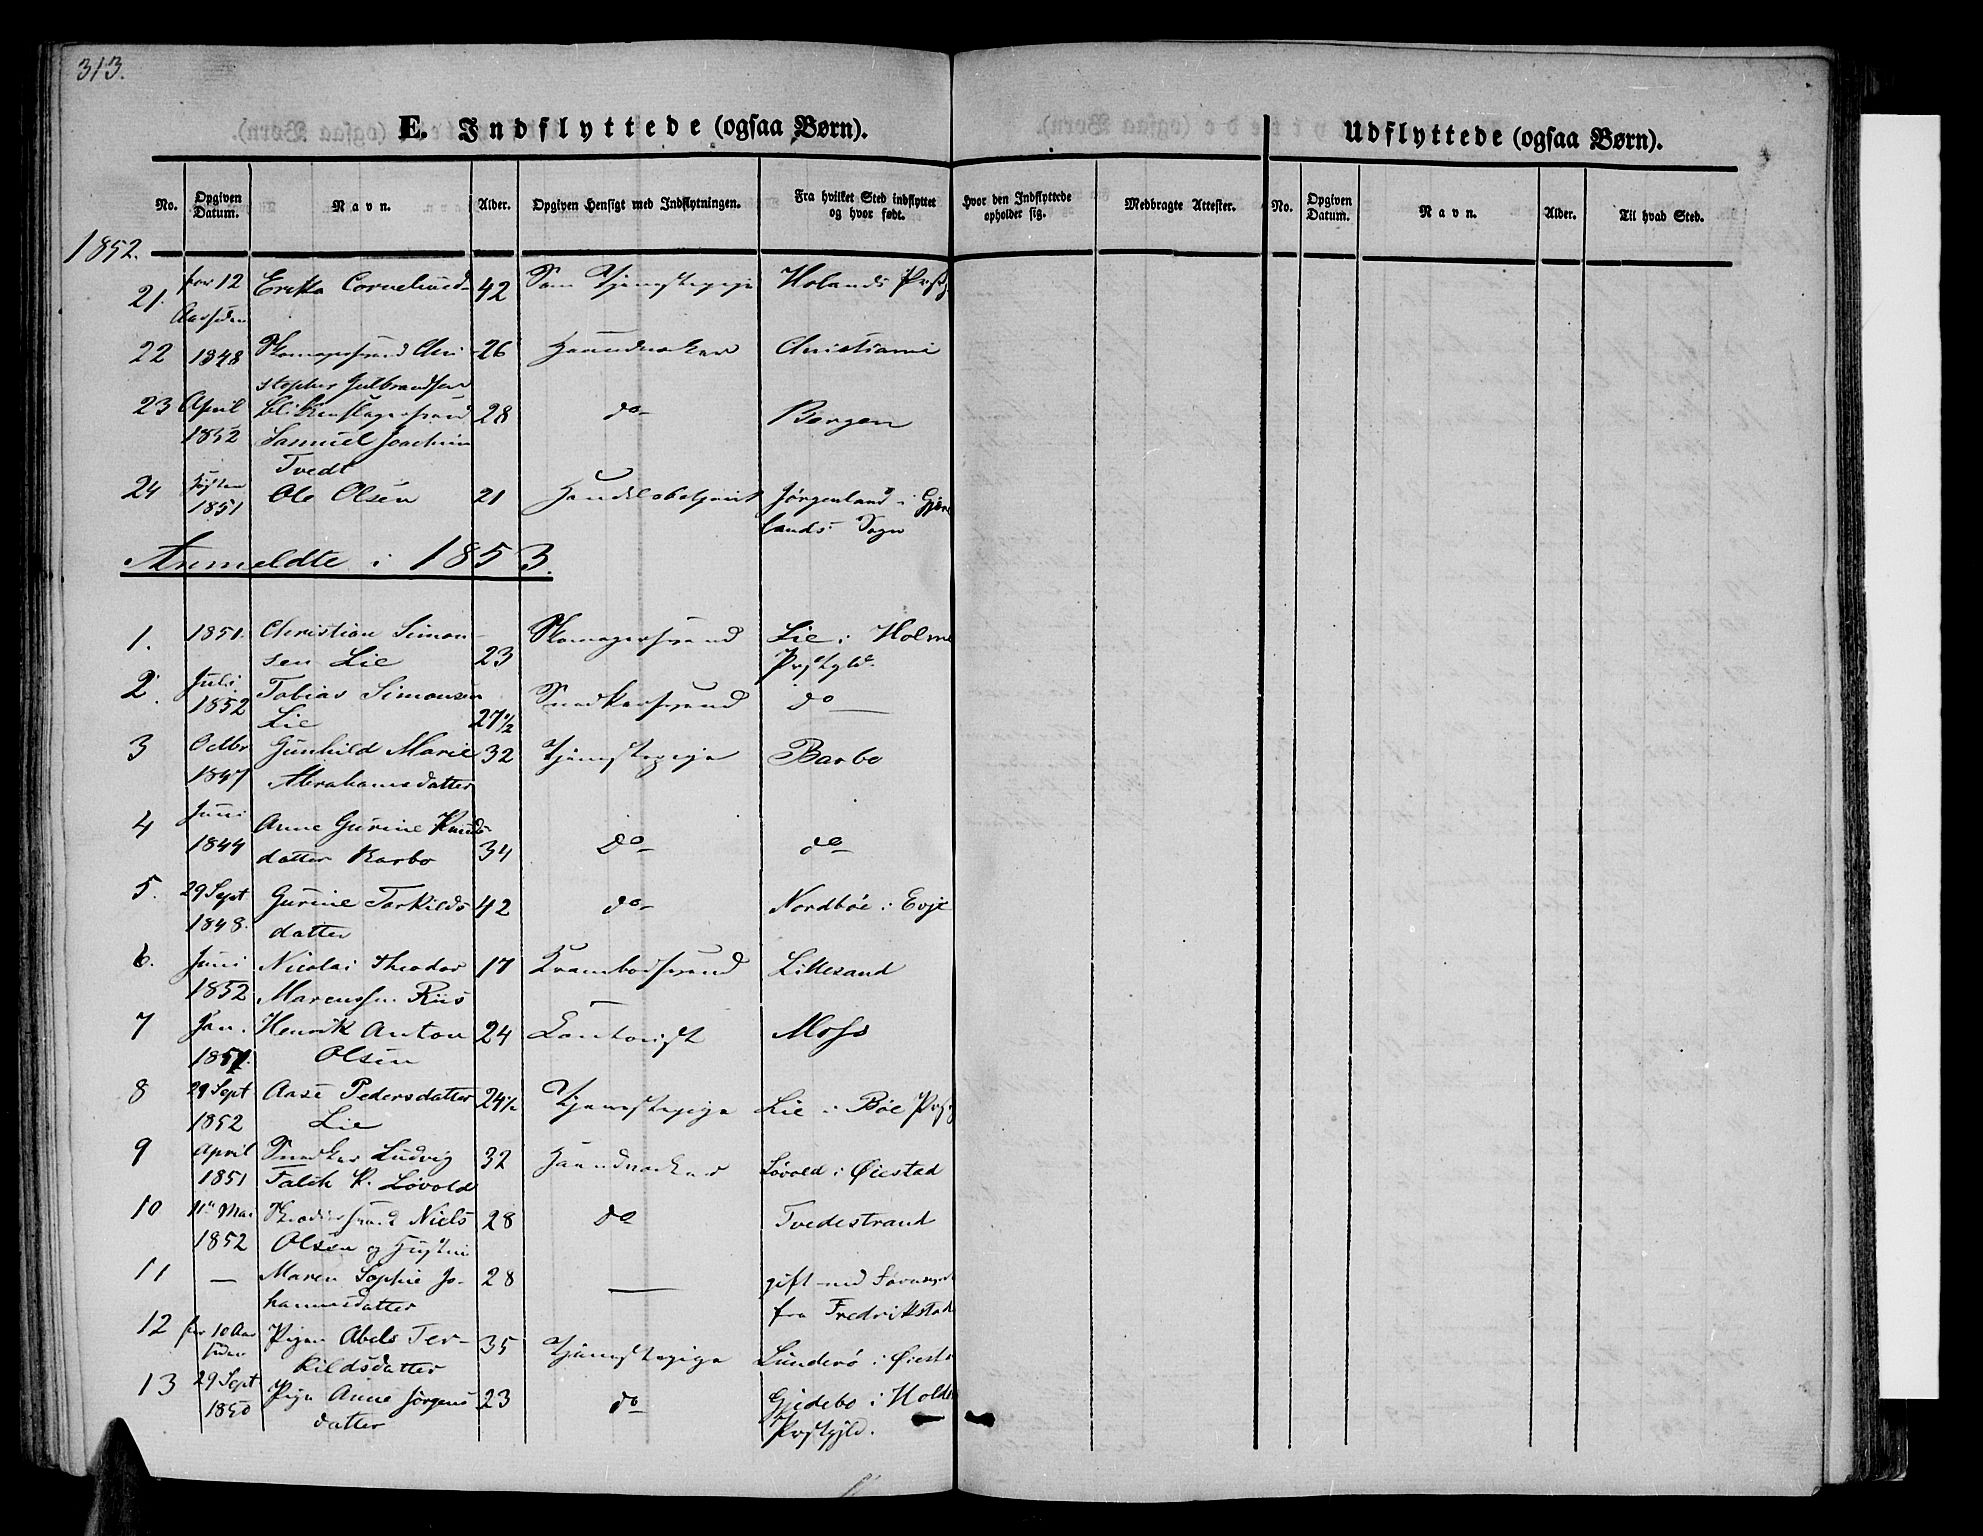 313.
E. Indflyttede (ogsaa Børn).
Udflyttede (ogsaa Børn).
No. Opgiven Datum. Navn. Alder. Opgiven Hensigt med Indflytningen. Fra hvilket Sted indflyttet og hvor født. Hvor den Indflyttede opholder sig. Medbragte Attester. No. Opgiven Datum. Navn. Alder. Til hvad Sted.
1852.
21. for 12 Cornelius 42 Som Tjenestepige Holands
Aar siden
22 1848 Skomagersvend Chri- 26 Haandværker Christiania
stopher Gulbrandsen
23 April Blikkenslagersvend 28 do Bergen
1852 Samuel Joachim
Tvedt
24 Ole Olsen 21 Handelsbetjent Jørgenland i
1851 lands Sogn
Anmeldte i 1853.
1. 1851. Christian Simon- Skomagersvend Lie i Holme
sen Lie 23 Prstgld.
2. Juli Tobias Simonsen Snedkersvend do
1852 Lie 27½
3 Octbr Gunhild Marie 32 Tjenestepige Barbo
1847 Abrahamsdatter
4 Juni Anne Gurine Knuds-
1844 datter Barbo 34 do do
5. 29 Sept Gurine Torkilds 42 do Nordbøe i Evje
1848. datter
6. Juni Nicolai Theodor 17 Krambodsvend Lillesand
1852 Marcussen Riis
7 Jan. Henrik Anton 24 Contorist Moss
1851. Olsen
8 29 Sept Aase Pedersdatter 24½ Tjenestepige Lie i Bøe
1852 Lie
9 April Snedker Ludvig 32 Haandværker Løvold i Øiestad
1851 Falck K. Løvold
10 11 Mai Niels 28 do Tvedestrand
1852 Olsen og Hustru
11 — Maren Sophie Jo- 28 — gift med
hannesdatter fra Fredrikstad
12 for 10 Aar Pigen Abels Ter- 35 Tjenestepige Lunderø i
siden kildsdatter
13 29 Sept Pige Anne Jørgens 23 do Gjedebo i
1850 datter Prstgjld.